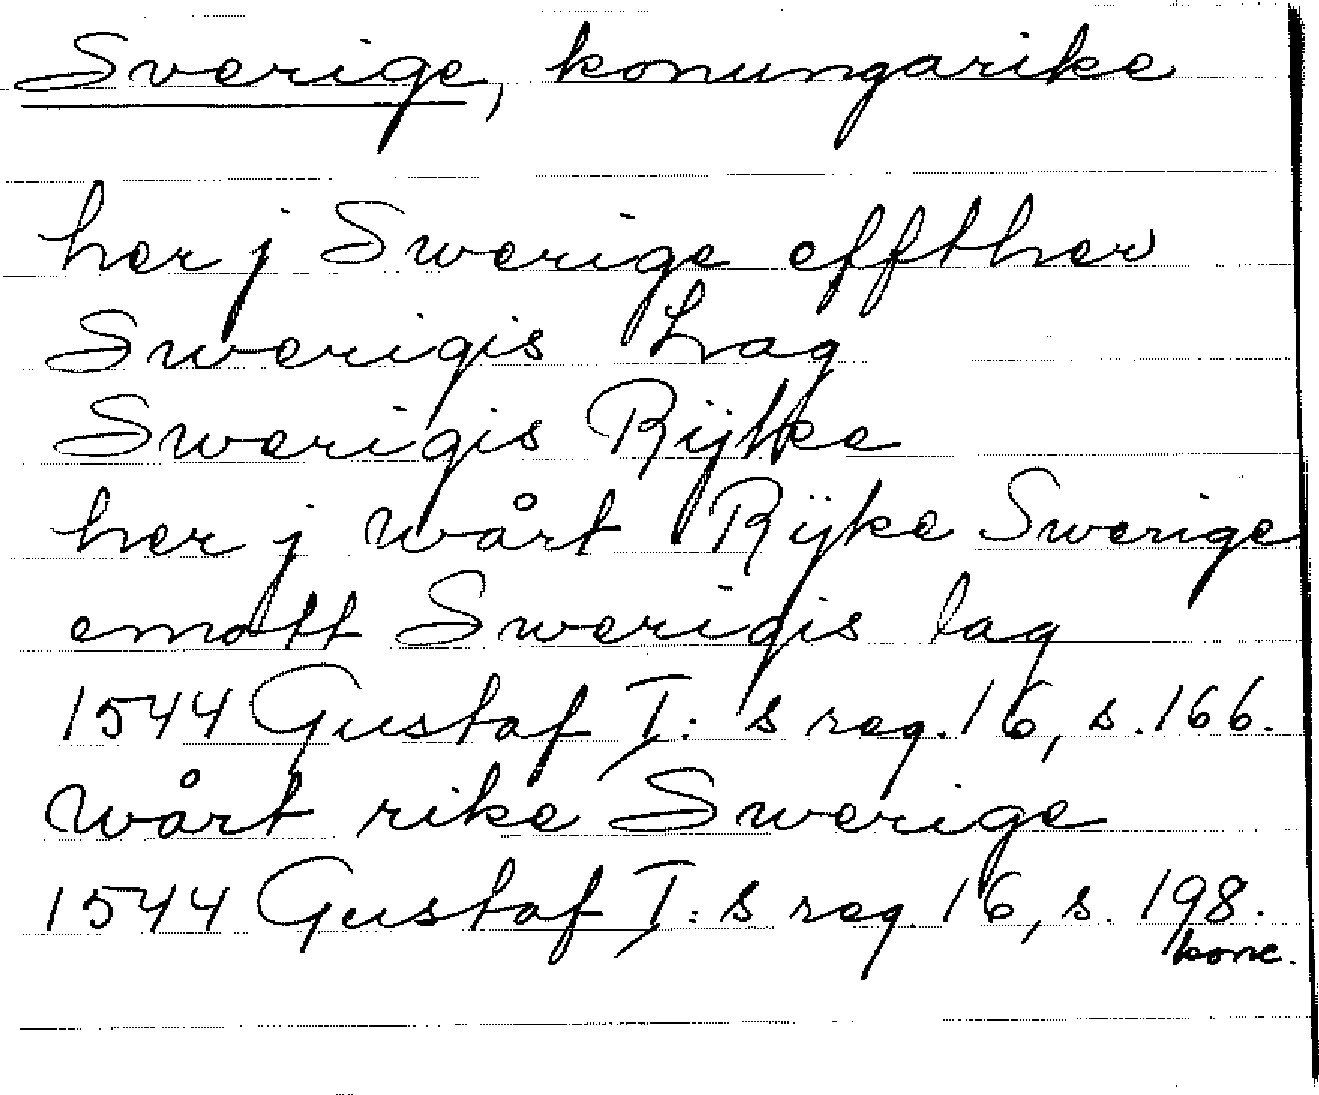 Sverige, konungarike
her j Swerige effther
Swerigis Lag
Swerigis Rijke
her j wårt Rijke Swerige
emott Swerigis lag
1544 Gustaf I:s reg. 16, s. 166.
Wårt rike Swerige
1544 Gustaf I:s reg. 16, s. 198.
konc.